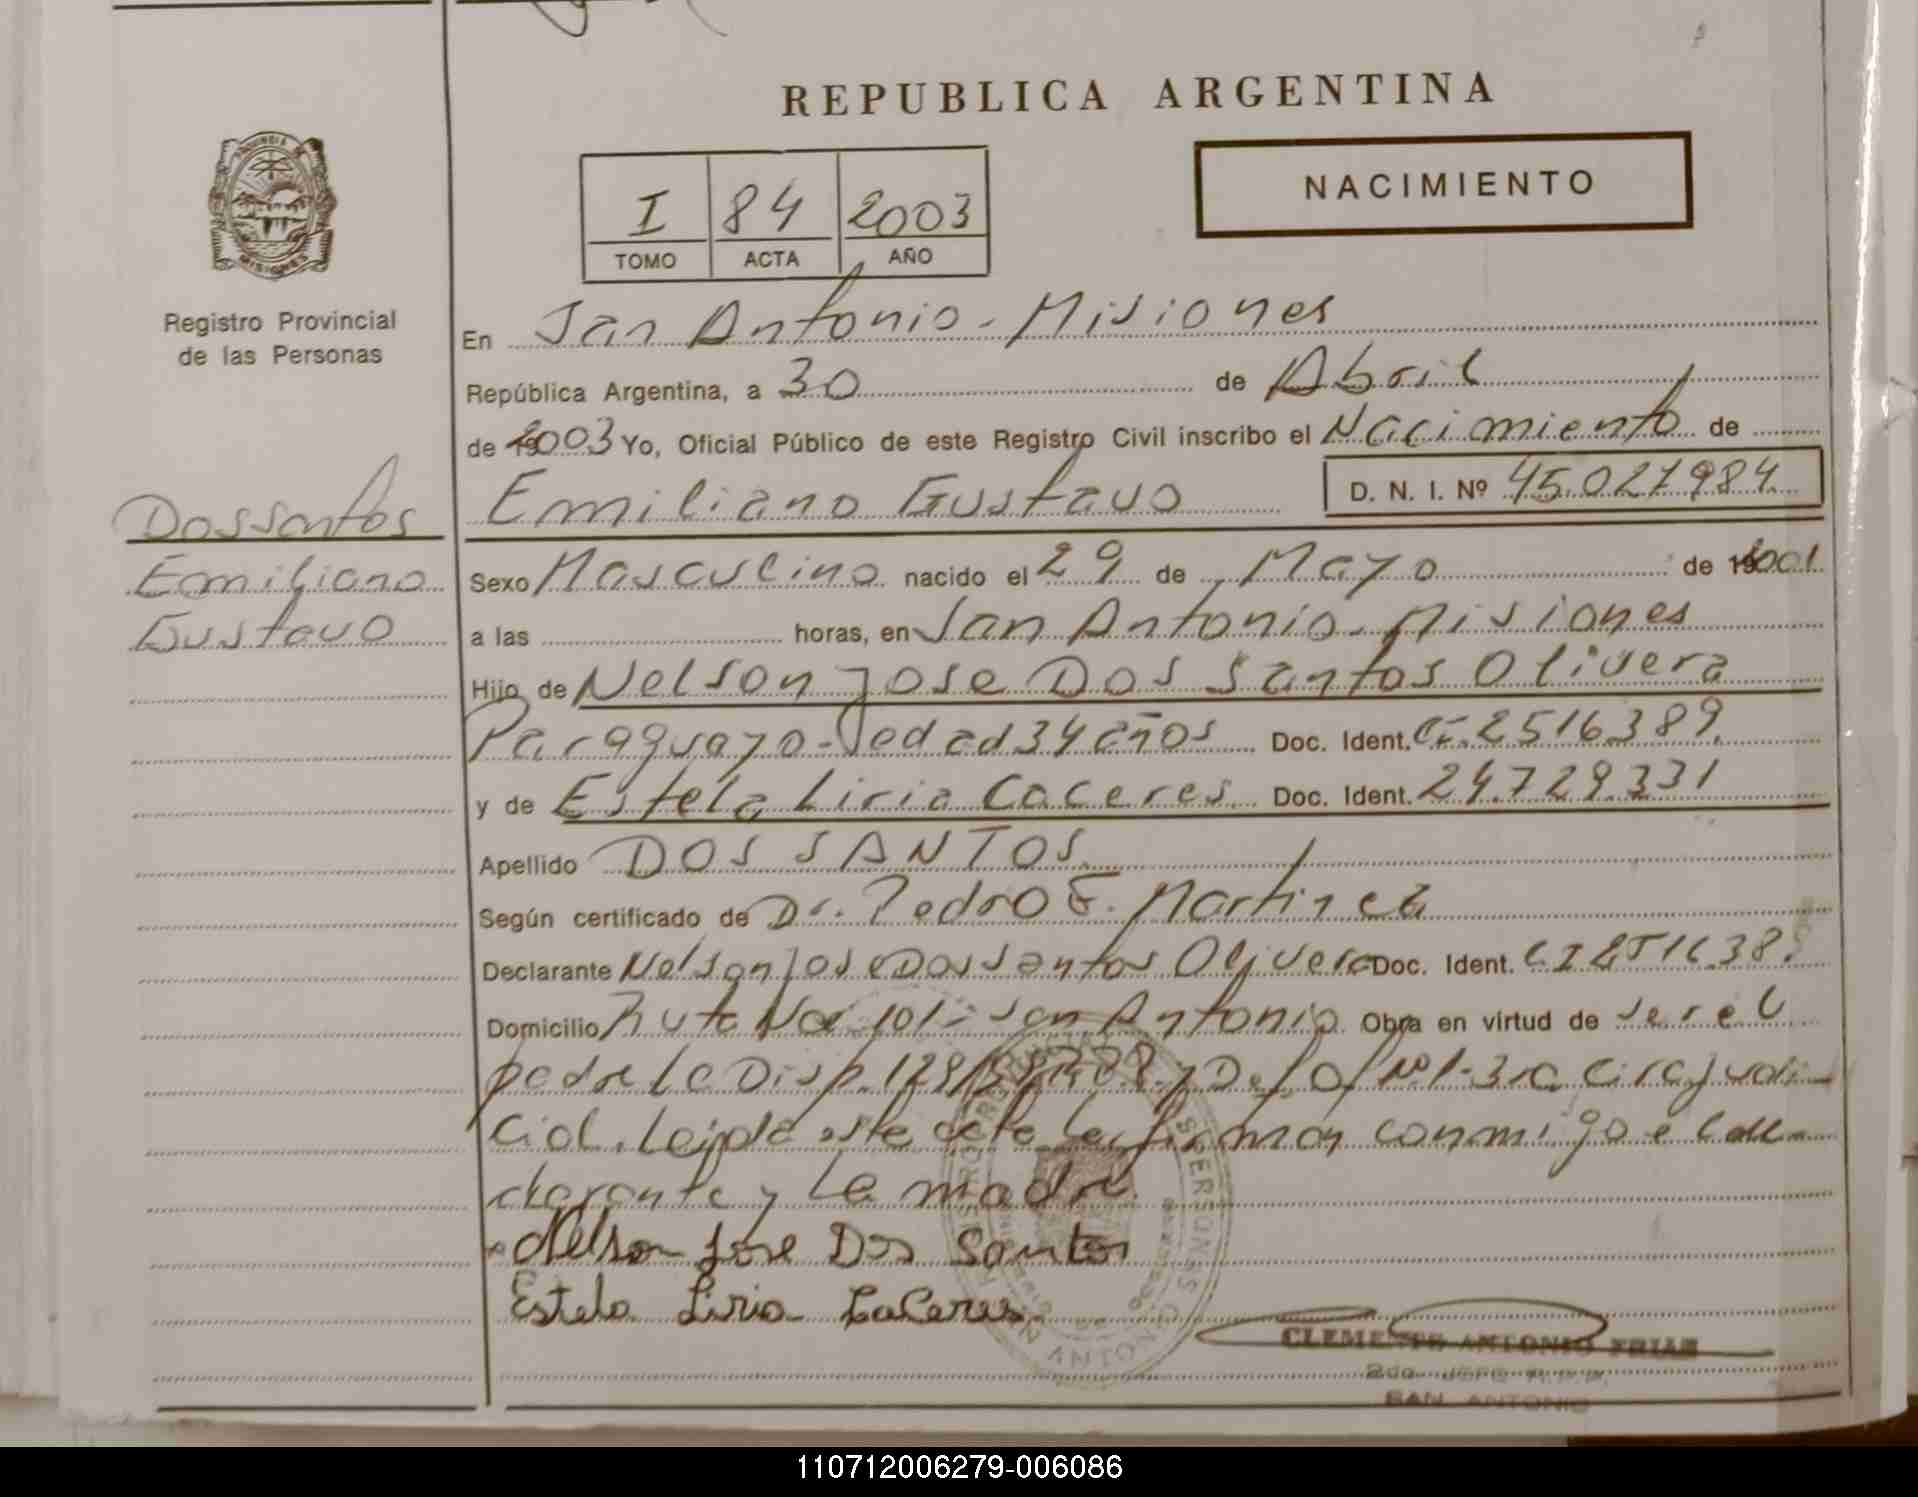 REPUBLICA ARGENTINA
NACIMIENTO
I 84 2003
TOMO ACTA AÑO
PROVINCIA DE
MISIONES
Registro Provincial
de las Personas
Dossantos
Emiliano
Gustavo
En San Antonio - Misiones
República Argentina, a 30 de Abril
de 2003 Yo, Oficial Público de este Registro Civil inscribo el Nacimiento de
Emiliano Gustavo D. N. I. Nº 45.027.984
Sexo Masculino nacido el 29 de Mayo de 2001
a las horas, en San Antonio - Misiones
Hijo de Nelson Jose Dos Santos Olivera
Paraguayo - edad 34 años Doc. Ident. 2516389
y de Estela Liria Caceres Doc. Ident. 24.729.331
Apellido DOS SANTOS
Según certificado de Dr. Pedro E. Martinez
Declarante Nelson Jose Dos Santos Olivera Doc. Ident. C I 251638
Domicilio Ruta Nac 101 - San Antonio Obra en virtud de ser el
padre La Disp. 128 y Def. Of. Nº 1 - 3ra Circ. Judi-
cial. Leida este acta la firman conmigo el de-
clarante y la madre.
Nelson Jose Dos Santos
Estela Liria Caceres
CLEMENTE ANTONIO FRIAS
2do. JEFE R.P.P.
SAN ANTONIO
110712006279-006086